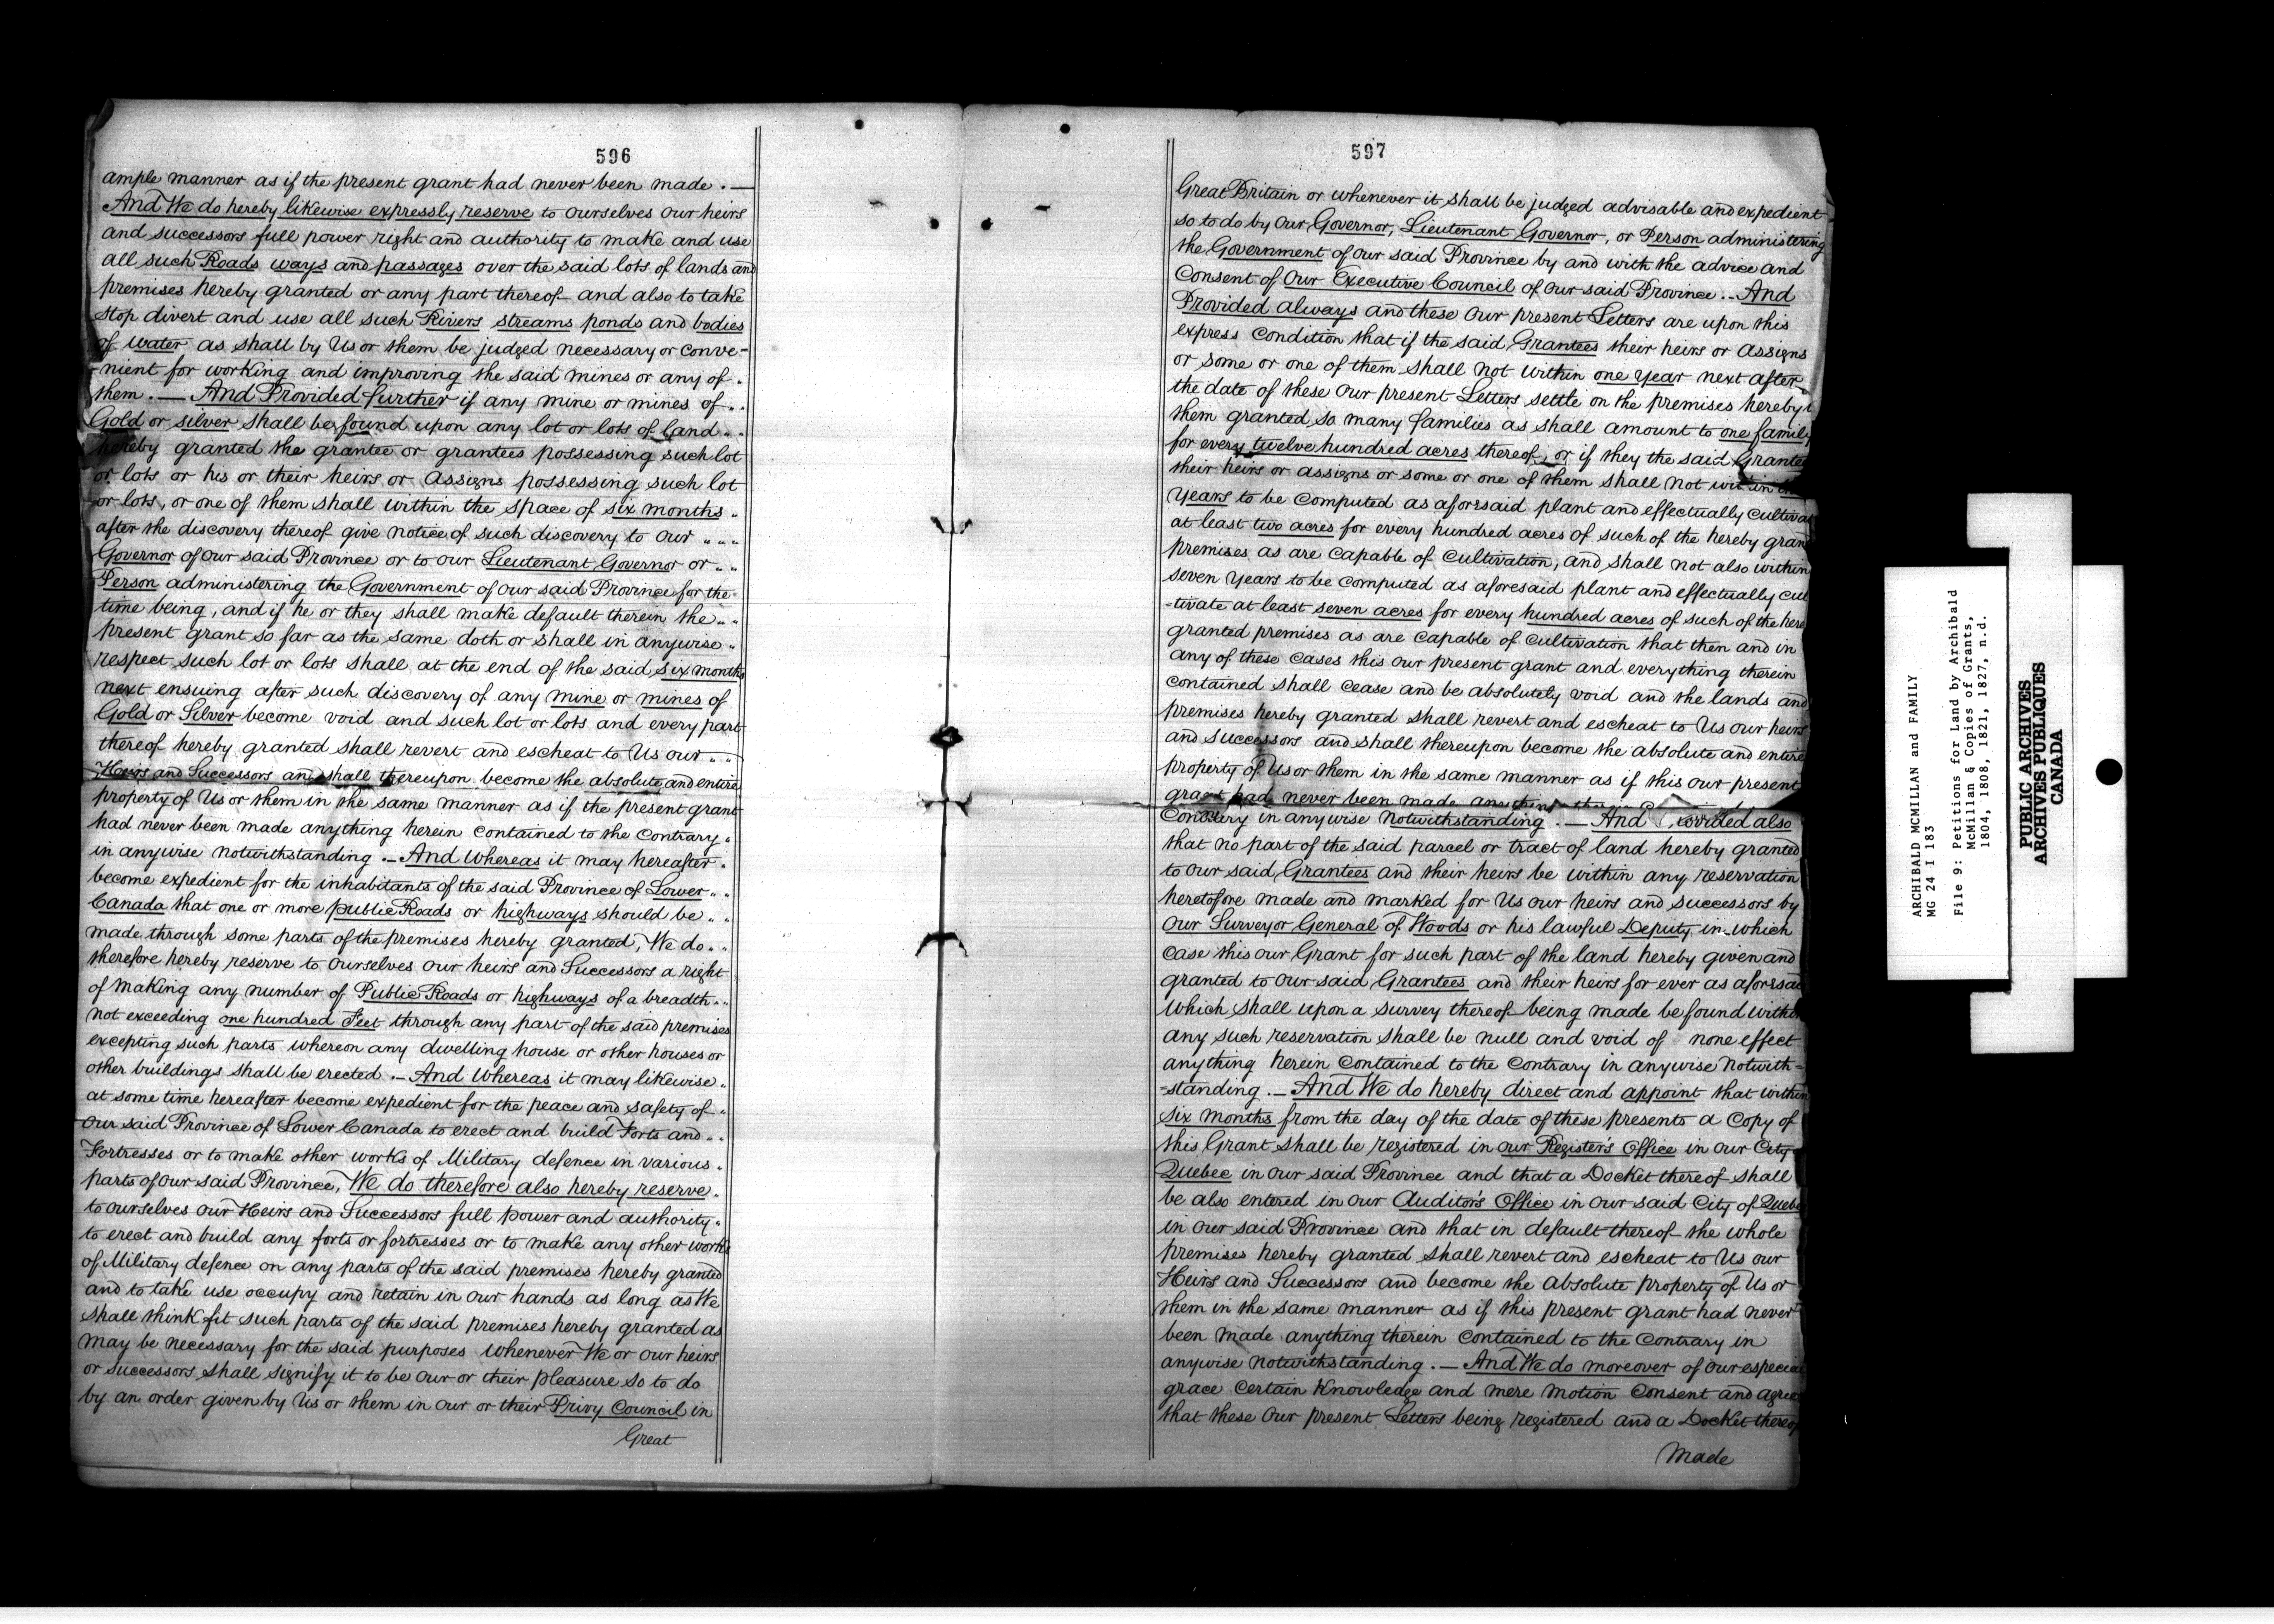 596
ample manner as if the present grant had never been made . —
And We do hereby likewise expressly reserve to ourselves our heirs
and successors full power right and authority to make and use
all such Roads ways and passages over the said lots of lands and
premises hereby granted or any part thereof and also to take
stop divert and use all such Rivers streams ponds and bodies
of water as shall by Us or them be judged necessary or conve=
-nient for working and improving the said mines or any of .
them . — And Provided further if any mine or mines of ..
Gold or silver shall be found upon any lot or lots of land ..
hereby granted the grantee or grantees possessing such lot
or lots or his or their heirs or assigns possessing such lot
or lots, or one of them shall within the space of six months ..
after the discovery thereof give notice of such discovery to our ,, ,, ,,
Governor of our said Province or to our Lieutenant Governor or ..
Person administering the Government of our said Province for the
time being, and if he or they shall make default therein the ..
present grant so far as the same doth or shall in anywise ..
respect such lot or lots shall at the end of the said six months
next ensuing after such discovery of any mine or mines of
Gold or Silver become void and such lot or lots and every part
thereof hereby granted shall revert and escheat to Us our ..
Heirs and Successors and shall thereupon become the absolute and entire
property of Us or them in the same manner as if the present grant
had never been made anything herein contained to the contrary .
in anywise notwithstanding . — And Whereas it may hereafter .
become expedient for the inhabitants of the said Province of Lower ..
Canada that one or more public Roads or highways should be ..
made through some parts of the premises hereby granted, We do ..
therefore hereby reserve to ourselves our heirs and Successors a right
of making any number of Public Roads or highways of a breadth ..
not exceeding one hundred Feet through any part of the said premises
excepting such parts whereon any dwelling house or other houses or
other buildings shall be erected . — And Whereas it may likewise ..
at some time hereafter become expedient for the peace and safety of ..
our said Province of Lower Canada to erect and build Forts and ..
Fortresses or to make other works of Military defence in various ..
parts of our said Province, We do therefore also hereby reserve ..
to ourselves our Heirs and Successors full power and authority .
to erect and build any forts or fortresses or to make any other works
of Military defence on any parts of the said premises hereby granted
and to take use occupy and retain in our hands as long as We
shall think fit such parts of the said premises hereby granted as
may be necessary for the said purposes whenever We or our heirs
or successors shall signify it to be our or their pleasure so to do
by an order given by Us or them in our or their Privy Council in
Great
597
Great Britain or whenever it shall be judged advisable and expedient
so to do by our Governor, Lieutenant Governor, or Person administering
the Government of our said Province by and with the advice and
Consent of our Executive Council of our said Province . . And
Provided always and these our present Letters are upon this
express condition that if the said Grantees their heirs or assigns
or some or one of them shall not within one year next after
the date of these our present Letters settle on the premises hereby
them granted so many families as shall amount to one family
for every twelve hundred acres thereof, or if they the said
their heirs or assigns or some or one of them shall not within
years to be computed as aforesaid plant and effectually
at least two acres for every hundred acres of such of the hereby
premises as are capable of cultivation, and shall not also within
seven years to be computed as aforesaid plant and effectually cul
-tivate at least seven acres for every hundred acres of such of the here
granted premises as are capable of cultivation that then and in
any of these cases this our present grant and everything therein
contained shall cease and be absolutely void and the lands and
premises hereby granted shall revert and escheat to Us our heirs
and successors and shall thereupon become the absolute and entire
property of Us or them in the same manner as if this our present
grant had never been made
Contrary in anywise notwithstanding . — And Provided also
that no part of the said parcel or tract of land hereby granted
to our said Grantees and their heirs be within any reservation
heretofore made and marked for Us our heirs and successors by
our Surveyor General of Woods or his lawful Deputy, in which
case this our Grant for such part of the land hereby given and
granted to our said Grantees and their heirs for ever as aforesaid
which shall upon a survey thereof being made be found within
any such reservation shall be null and void of none effect
anything herein contained to the contrary in anywise notwith=
=standing . — And We do hereby direct and appoint that within
six months from the day of the date of these presents a Copy of
this Grant shall be registered in our Register's Office in our City
Quebec in our said Province and that a Docket thereof shall
be also entered in our Auditor's Office in our said City of
in our said Province and that in default thereof the whole
premises hereby granted shall revert and escheat to Us our
Heirs and Successors and become the absolute property of Us or
them in the same manner as if this present grant had never
been made anything therein contained to the contrary in
anywise notwithstanding . — And We do moreover of our especial
grace certain Knowledge and mere motion Consent and
that these our present Letters being registered and a Docket thereof
Made
ARCHIBALD MCMILLAN and FAMILY
MG 24 I 183
File 9: Petitions for Land by Archibald
McMillan & Copies of Grants,
1804, 1808, 1821, 1827, n.d.
PUBLIC ARCHIVES
ARCHIVES PUBLIQUES
CANADA